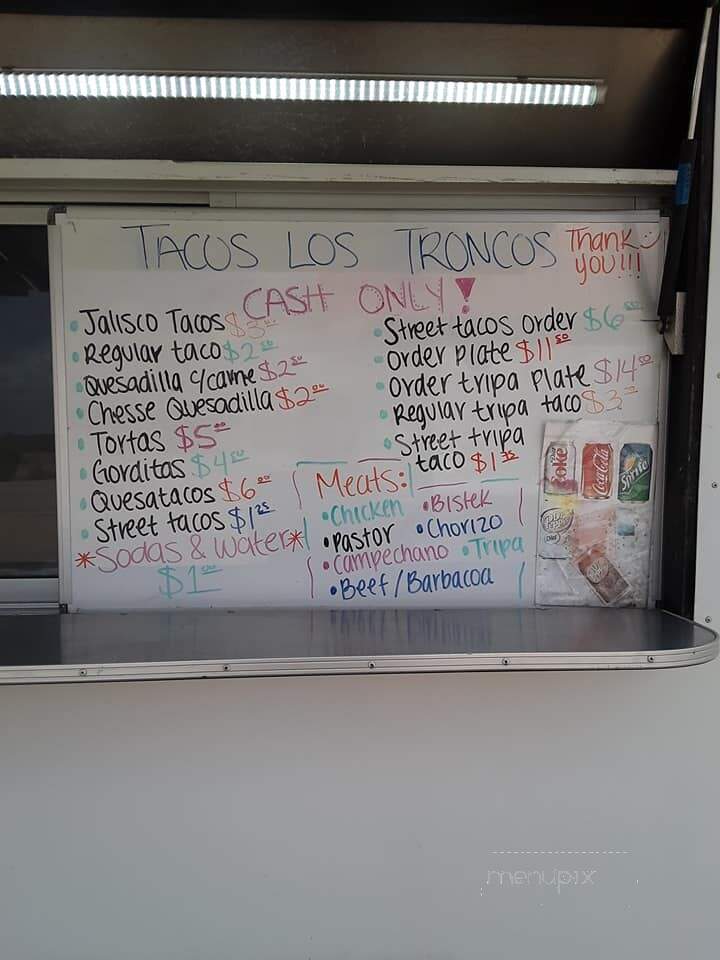 TACOS LOS TRONCOS
Thank
YOU!!!
CASH ONLY!
• Jalisco Tacos $3
• Regular taco $2
• Quesadilla c/carne $2.50
• Chesse Quesadilla $2.00
• Tortas $5.00
• Gorditas $4.50
• Quesatacos $6.00
• Street tacos $1.25
*Sodas & Water*
$1.00
• Street tacos order $6
• Order Plate $11.50
• Order tripa Plate $14.50
• Regular tripa taco $3
• Street tripa
taco $1.75
Meats:
• Chicken
• Pastor
• Campechano
• Beef/Barbacoa
• Bistek
• Chorizo
• Tripa
Coke
Coca-Cola
Sprite
menupix